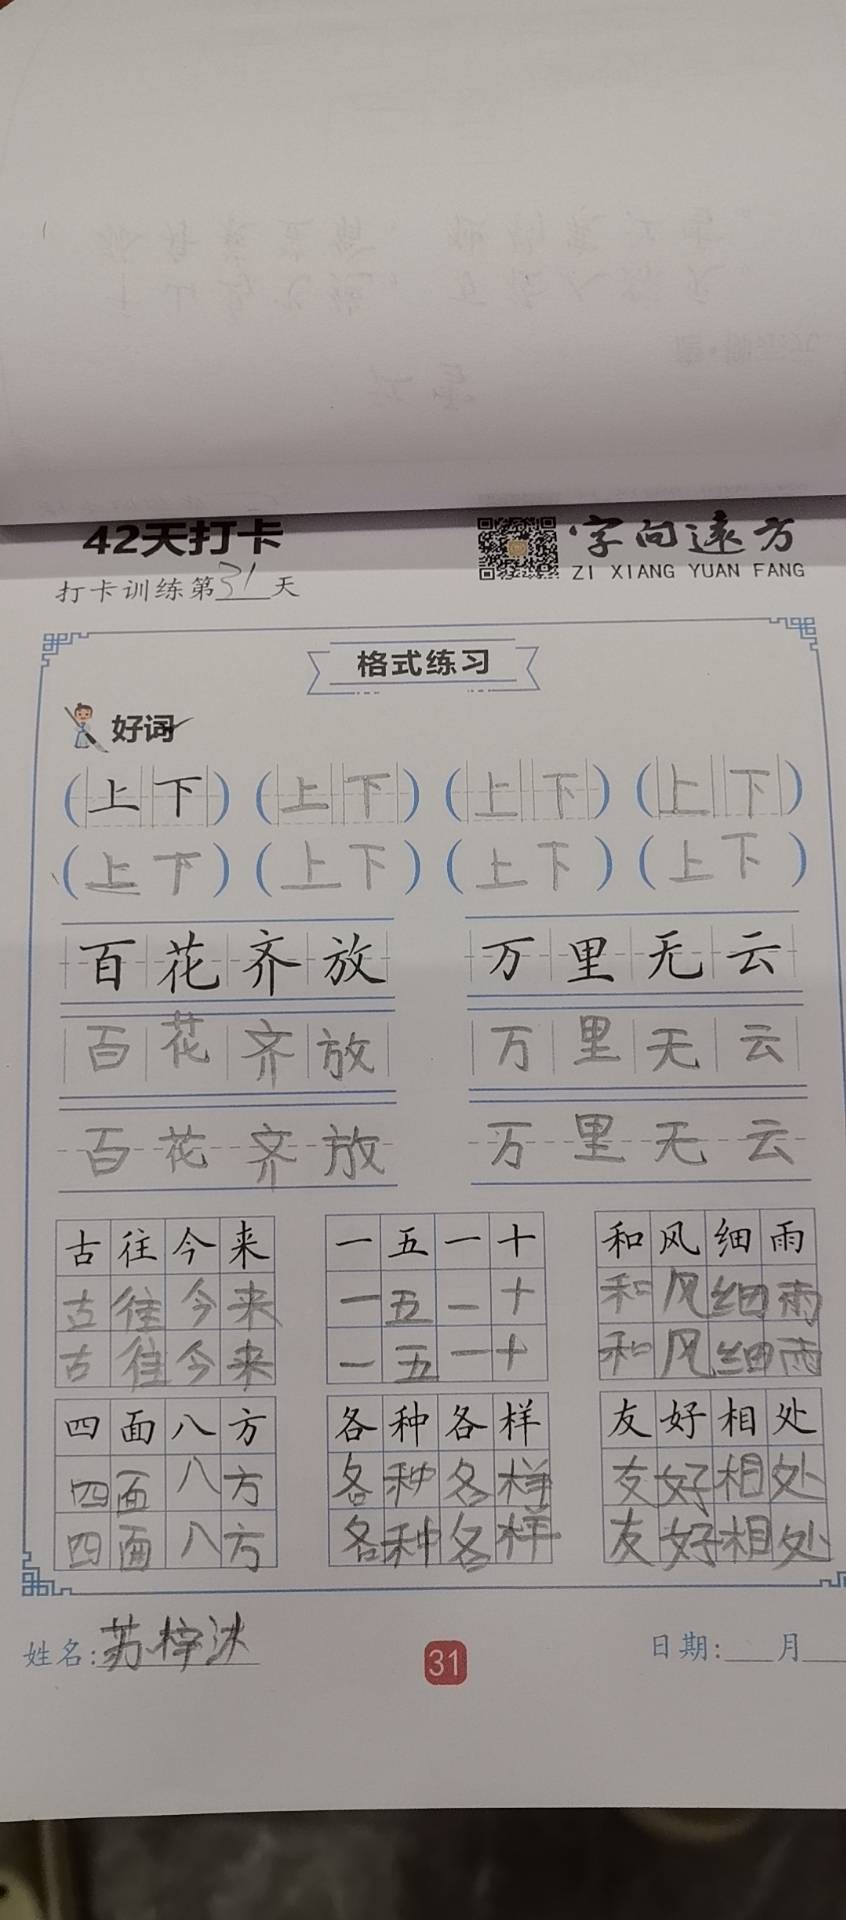 42天打卡
字向远方
ZI XIANG YUAN FANG
打卡训练第31天
格式练习
好词
(上下) (上下) (上下) (上下)
(上下) (上下) (上下) (上下)
百花齐放 万里无云
百花齐放 万里无云
百花齐放 万里无云
古往今来 一五一十 和风细雨
古往今来 一五一十 和风细雨
古往今来 一五一十 和风细雨
四面八方 各种各样 友好相处
四面八方 各种各样 友好相处
四面八方 各种各样 友好相处
姓名:苏梓沐
31
日期: 月